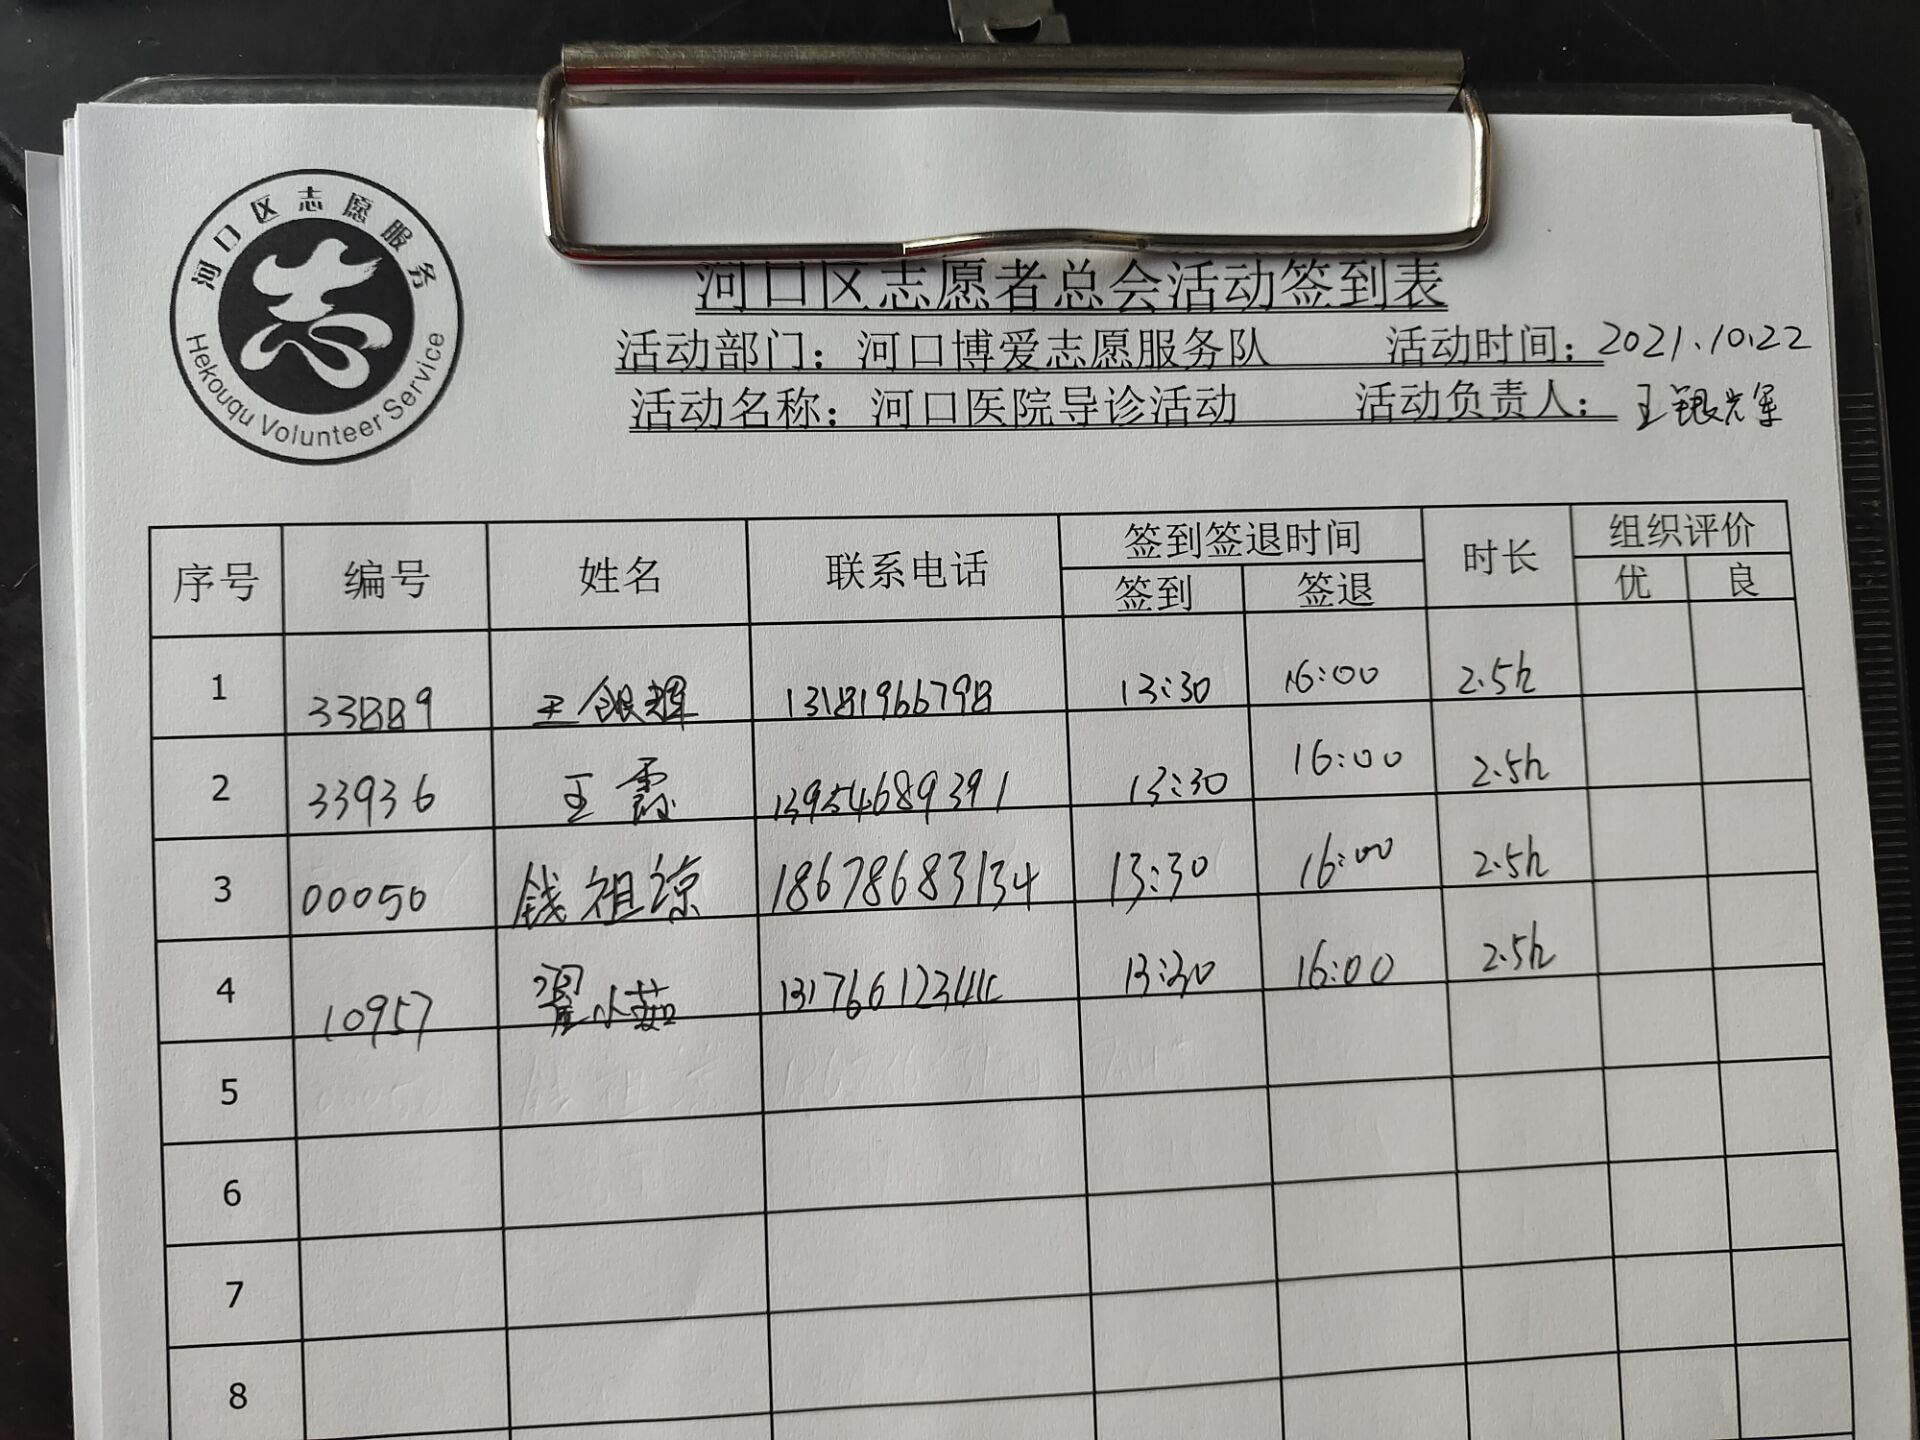 河口区志愿服务
Hekouqu Volunteer Service
河口区志愿者总会活动签到表
活动部门：河口博爱志愿服务队 活动时间：2021.10.22
活动名称：河口医院导诊活动 活动负责人：王银辉
序号 编号 姓名 联系电话 签到签退时间 时长 组织评价
签到 签退 优 良
1 33889 王银辉 13181966798 13:30 16:00 2.5h
2 33936 王霞 13954689391 13:30 16:00 2.5h
3 00050 钱祖凉 18678683134 13:30 16:00 2.5h
4 10957 翟小茹 13:30 16:00 2.5h
5
6
7
8